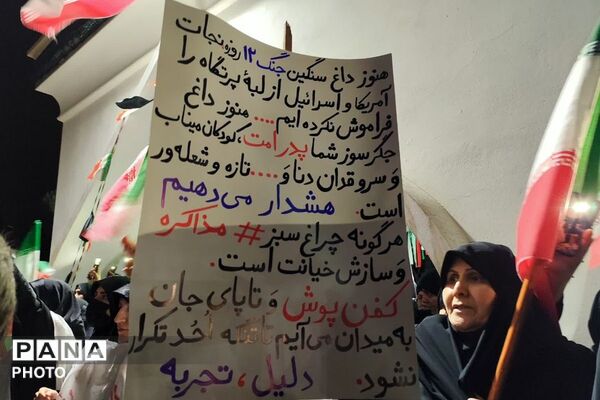 هنوز داغ سنگین جنگ ۱۲ روزه نجات
آمریکا و اسرائیل از لبهٔ پرتگاه را
فراموش نکرده ایم.... هنوز داغ
جگرسوز شما پدر امت، کودکان میناب
وَ سروقدان دنا وَ.... تازه و شعله‌ور
است. هشدار می‌دهیم
هرگونه چراغ سبز # مذاکره
وَ سازش خیانت است.
کفن پوش وَ تا پای جان
به میدان می‌آیم تا تنگه اُحد تکرار
نشود. دلیل، تجربه
PANA
PHOTO